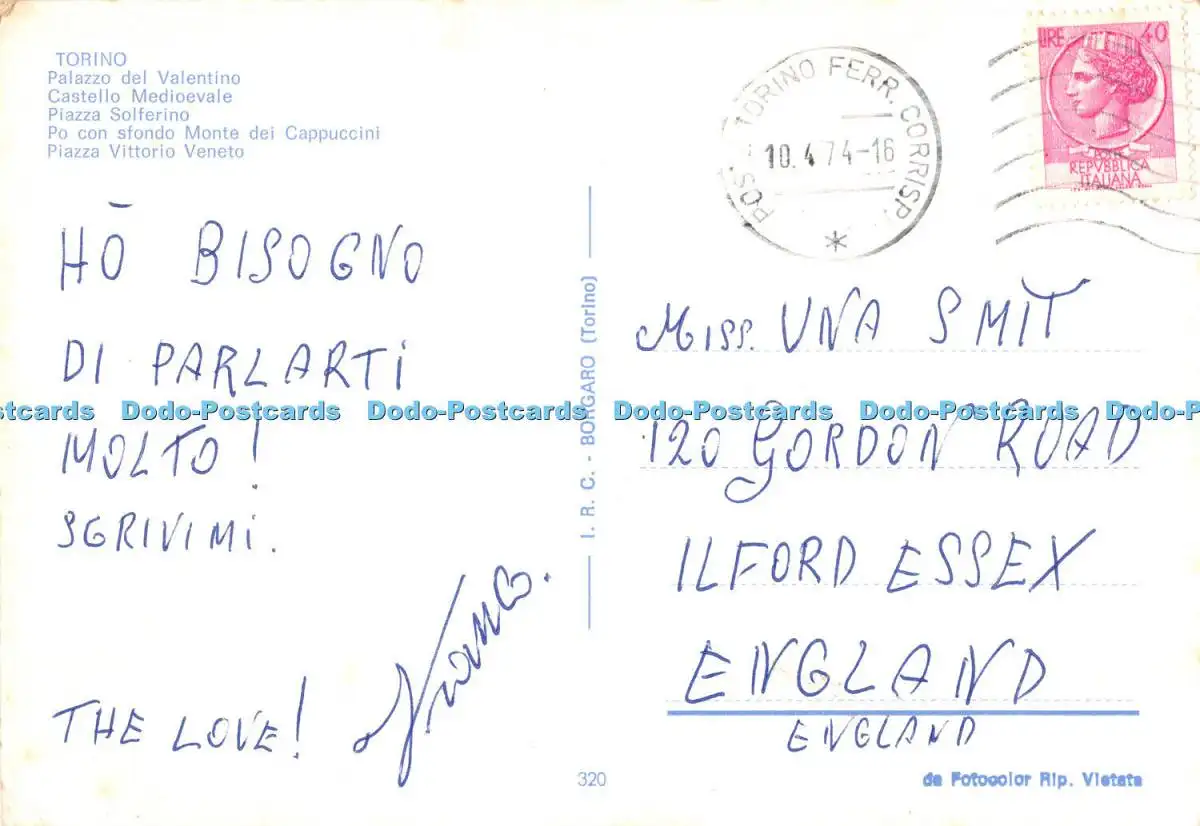 TORINO
Palazzo del Valentino
Castello Medioevale
Piazza Solferino
Po con sfondo Monte dei Cappuccini
Piazza Vittorio Veneto
POS. - TORINO FERR. CORRISP.
10.4.74-16
*
LIRE 40
POSTE
REPVBBLICA
ITALIANA
HŌ BISOGNO
DI PARLARTi
MOLTO!
SGRIVIMi.
THE LOVE!
Franco.
I. R. C. - BORGARO (Torino)
Miss. UNA SMIT
120 GORDON ROAD
ILFORD ESSEX
ENGLAND
ENGLAND
320
da Fotocolor Rip. Vietata
stcards Dodo-Postcards Dodo-Postcards Dodo-Postcards Dodo-Postcards Dodo-Postc